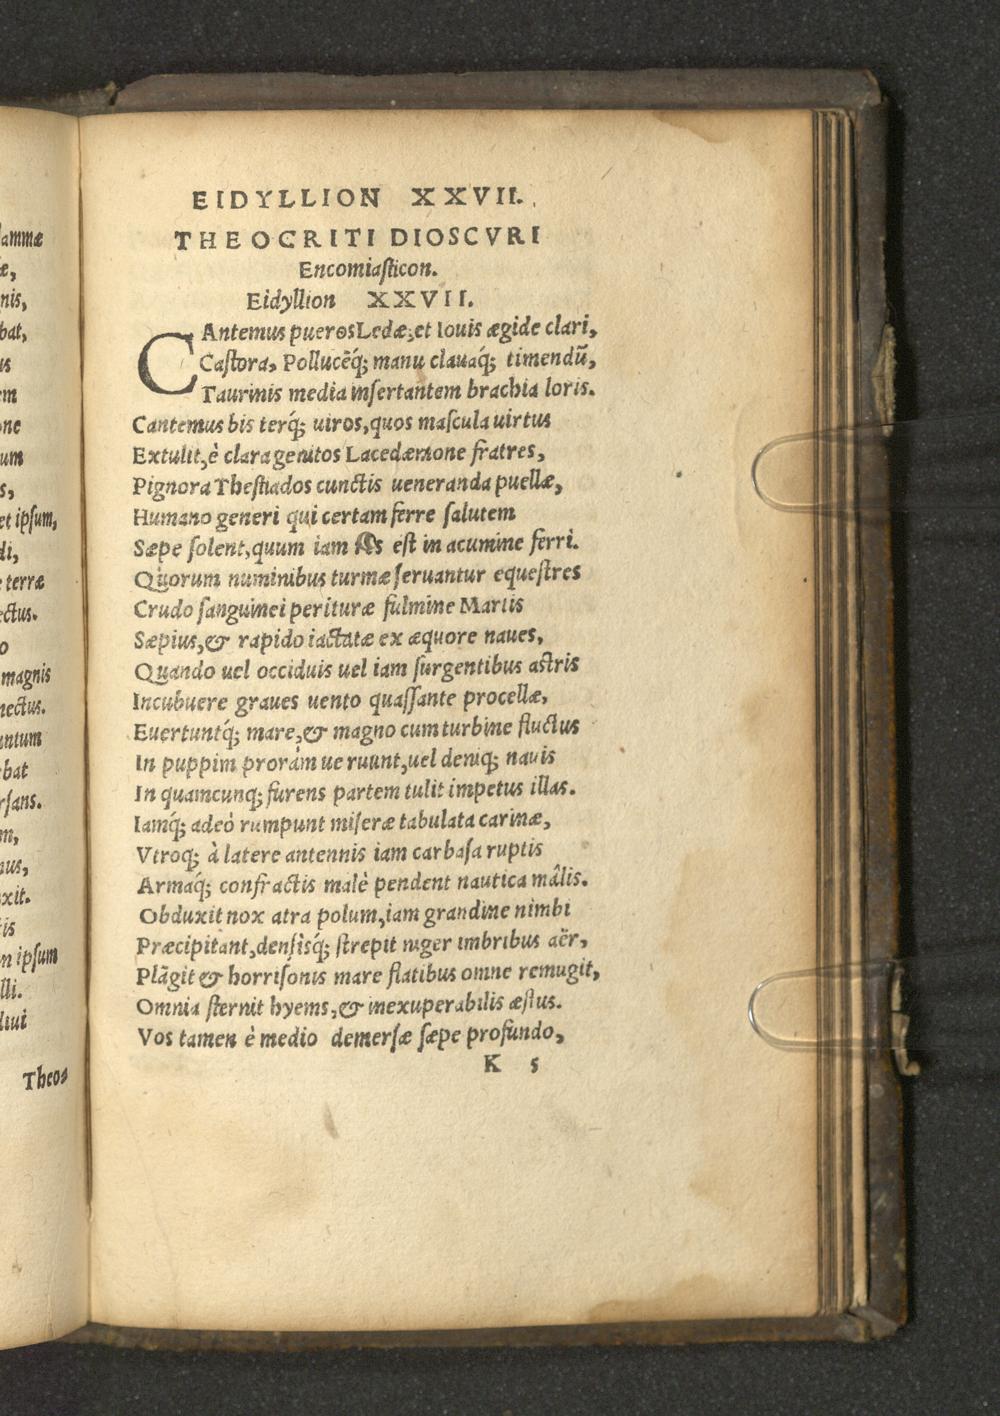 EIDYLLION XXVII.
THEOCRITI DIOSCVRI
Encomiasticon.
Eidyllion XXVII.
CAntemus pueros Ledæ, et Iouis ægide clari,
Castora, Pollucẽq́; manu clauaq́; timendũ,
Taurinis media insertantem brachia loris.
Cantemus bis terq́; uiros, quos mascula uirtus
Extulit, è clara genitos Lacedæmone fratres,
Pignora Thestiados cunctis ueneranda puellæ,
Humano generi qui certam ferre salutem
Sæpe solent, quum iam est in acumine ferri.
Quorum numinibus turmæ seruantur equestres
Crudo sanguinei perituræ fulmine Martis
Sæpius, & rapido iactatæ ex æquore naues,
Quando uel occiduis uel iam surgentibus astris
Incubuere graues uento quassante procellæ,
Euertuntq́; mare, & magno cum turbine fluctus
In puppim proràm ue ruunt, uel deniq; nauis
In quamcunq; furens partem tulit impetus illas.
Iamq́; adeò rumpunt miseræ tabulata carinæ,
Vtroq; à latere antennis iam carbasa ruptis
Armaq́; confractis malè pendent nautica mâlis.
Obduxit nox atra polum, iam grandine nimbi
Præcipitant, densisq́; strepit niger imbribus aër,
Plãgit & horrisonis mare flatibus omne remugit,
Omnia sternit hyems, & inexuperabilis æstus.
Vos tamen è medio demersæ sæpe profundo,
K 5
ammæ
æ,
nis,
bat,
us
em
one
um
s,
et ipsum,
di,
e terræ
ectus.
o
magnis
nectus.
untum
ebat
rsans.
m,
nus,
xit.
tis
n ipsum
lli.
liui
Theo-